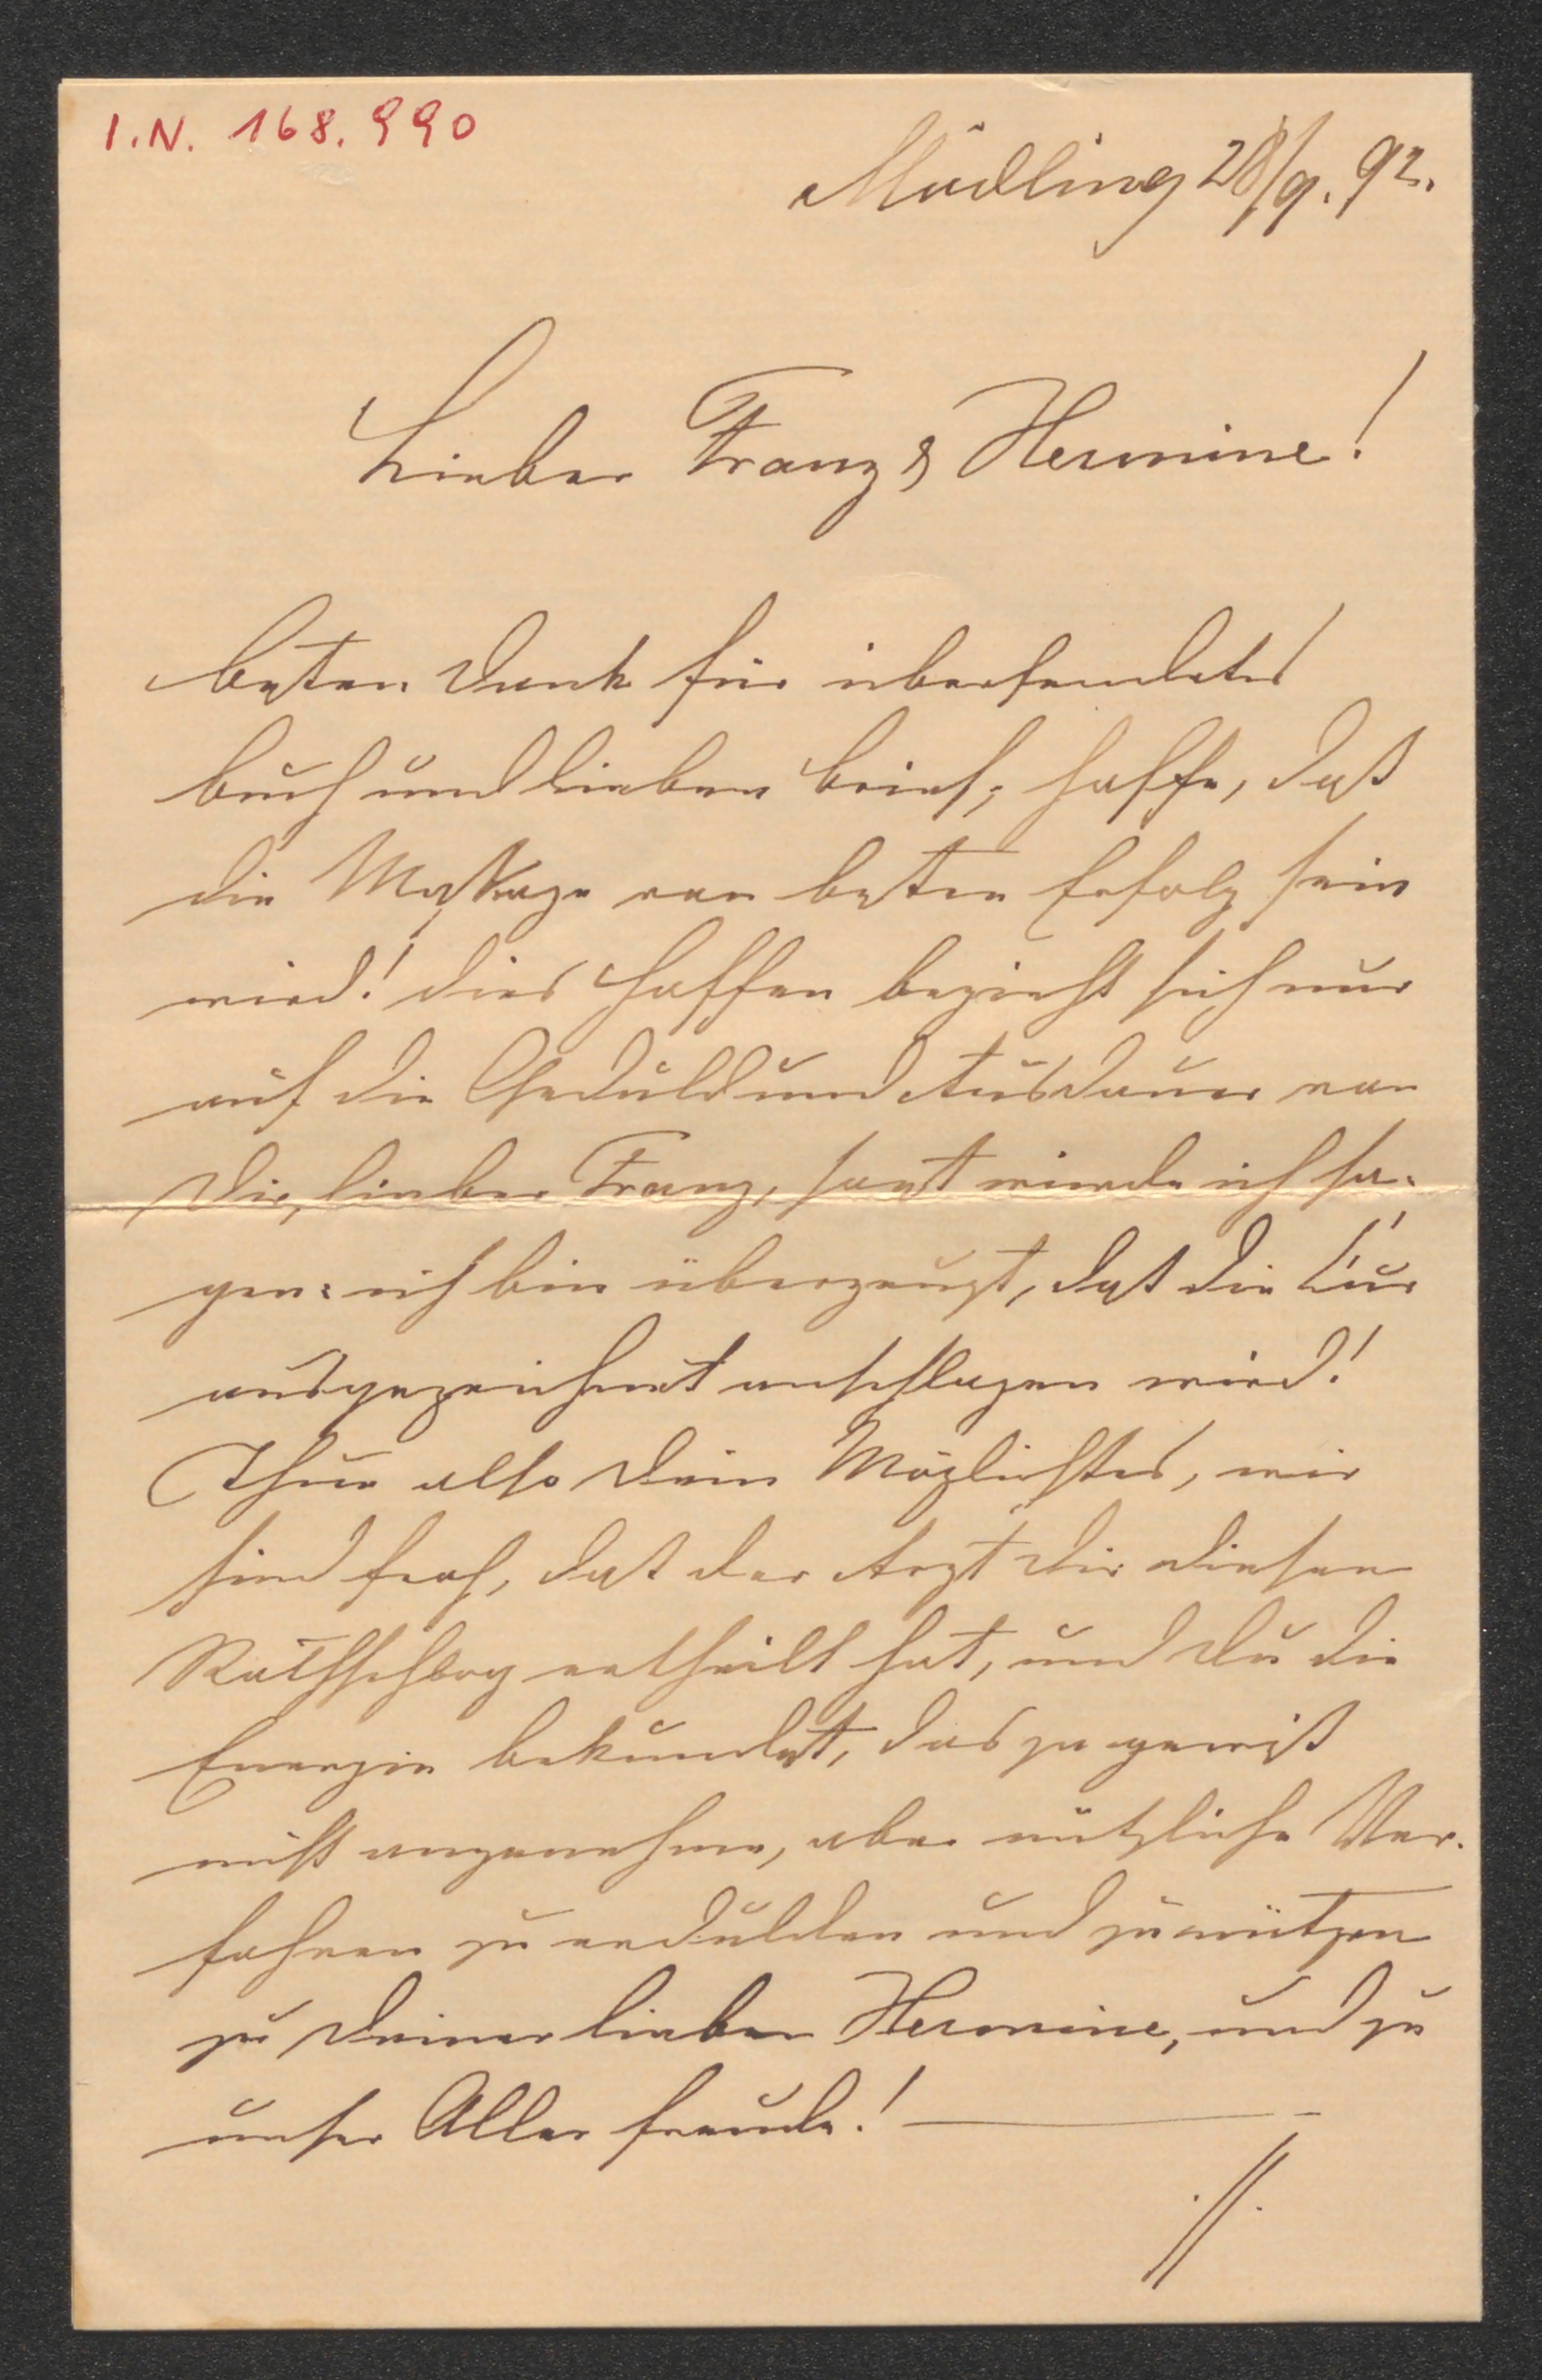 I.N. 168.990
Mödling 28/9. 92.
Lieber Franz & Hermine!
Besten Dank für übersendetes
Buch und lieben Brief; hoffe, daß
die Massage von bestem Erfolg sein
wird! Dies Hoffen bezieht sich nur
auf die Geduld und Ausdauer von
Dir, lieber Franz, sonst würde ich sa-
gen: ich bin überzeugt, daß die Cur
ausgezeichnet anschlagen wird!
Thue also Dein Möglichstes, wir
sind froh, daß der Arzt Dir diesen
Rathschlag ertheilt hat, und Du die
Energie bekundest, das ja gewiß
nicht angenehme, aber nützliche Ver-
fahren zu erdulden und zu nützen
zu Deiner lieben Hermine, und zu
unser Aller Freude! —
./.